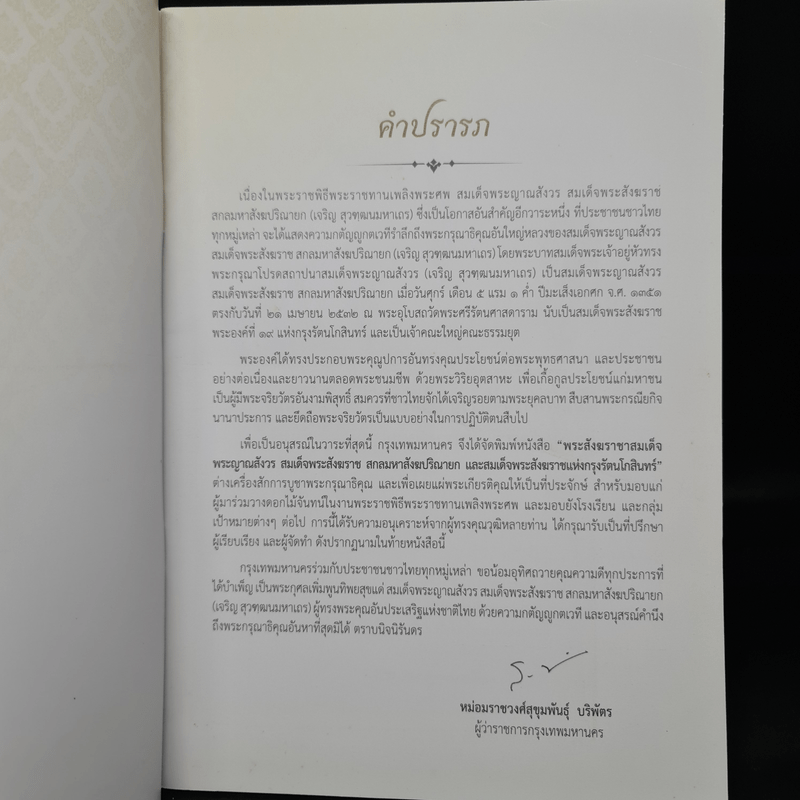 คำปรารภ
เนื่องในพระราชพิธีพระราชทานเพลิงพระศพ สมเด็จพระญาณสังวร สมเด็จพระสังฆราช
สกลมหาสังฆปริณายก (เจริญ สุวฑฺฒนมหาเถร) ซึ่งเป็นโอกาสอันสำคัญอีกวาระหนึ่ง ที่ประชาชนชาวไทย
ทุกหมู่เหล่า จะได้แสดงความกตัญญูกตเวทีรำลึกถึงพระกรุณาธิคุณอันใหญ่หลวงของสมเด็จพระญาณสังวร
สมเด็จพระสังฆราช สกลมหาสังฆปริณายก (เจริญ สุวฑฺฒนมหาเถร) โดยพระบาทสมเด็จพระเจ้าอยู่หัวทรง
พระกรุณาโปรดสถาปนาสมเด็จพระญาณสังวร (เจริญ สุวฑฺฒนมหาเถร) เป็นสมเด็จพระญาณสังวร
สมเด็จพระสังฆราช สกลมหาสังฆปริณายก เมื่อวันศุกร์ เดือน ๕ แรม ๑ ค่ำ ปีมะเส็งเอกศก จ.ศ. ๑๓๕๑
ตรงกับวันที่ ๒๑ เมษายน ๒๕๓๒ ณ พระอุโบสถวัดพระศรีรัตนศาสดาราม นับเป็นสมเด็จพระสังฆราช
พระองค์ที่ ๑๙ แห่งกรุงรัตนโกสินทร์ และเป็นเจ้าคณะใหญ่คณะธรรมยุต
พระองค์ได้ทรงประกอบพระคุณูปการอันทรงคุณประโยชน์ต่อพระพุทธศาสนา และประชาชน
อย่างต่อเนื่องและยาวนานตลอดพระชนมชีพ ด้วยพระวิริยอุตสาหะ เพื่อเกื้อกูลประโยชน์แก่มหาชน
เป็นผู้มีพระจริยวัตรอันงามพิสุทธิ์ สมควรที่ชาวไทยจักได้เจริญรอยตามพระยุคลบาท สืบสานพระกรณียกิจ
นานาประการ และยึดถือพระจริยวัตรเป็นแบบอย่างในการปฏิบัติตนสืบไป
เพื่อเป็นอนุสรณ์ในวาระที่สุดนี้ กรุงเทพมหานคร จึงได้จัดพิมพ์หนังสือ “พระสังฆราชาสมเด็จ
พระญาณสังวร สมเด็จพระสังฆราช สกลมหาสังฆปริณายก และสมเด็จพระสังฆราชแห่งกรุงรัตนโกสินทร์”
ต่างเครื่องสักการบูชาพระกรุณาธิคุณ และเพื่อเผยแผ่พระเกียรติคุณให้เป็นที่ประจักษ์ สำหรับมอบแก่
ผู้มาร่วมวางดอกไม้จันทน์ในงานพระราชพิธีพระราชทานเพลิงพระศพ และมอบยังโรงเรียน และกลุ่ม
เป้าหมายต่างๆ ต่อไป การนี้ได้รับความอนุเคราะห์จากผู้ทรงคุณวุฒิหลายท่าน ได้กรุณารับเป็นที่ปรึกษา
ผู้เรียบเรียง และผู้จัดทำ ดังปรากฏนามในท้ายหนังสือนี้
กรุงเทพมหานครร่วมกับประชาชนชาวไทยทุกหมู่เหล่า ขอน้อมอุทิศถวายคุณความดีทุกประการที่
ได้บำเพ็ญ เป็นพระกุศลเพิ่มพูนทิพยสุขแด่ สมเด็จพระญาณสังวร สมเด็จพระสังฆราช สกลมหาสังฆปริณายก
(เจริญ สุวฑฺฒนมหาเถร) ผู้ทรงพระคุณอันประเสริฐแห่งชาติไทย ด้วยความกตัญญูกตเวที และอนุสรณ์คำนึง
ถึงพระกรุณาธิคุณอันหาที่สุดมิได้ ตราบนิจนิรันดร
หม่อมราชวงศ์สุขุมพันธุ์ บริพัตร
ผู้ว่าราชการกรุงเทพมหานคร